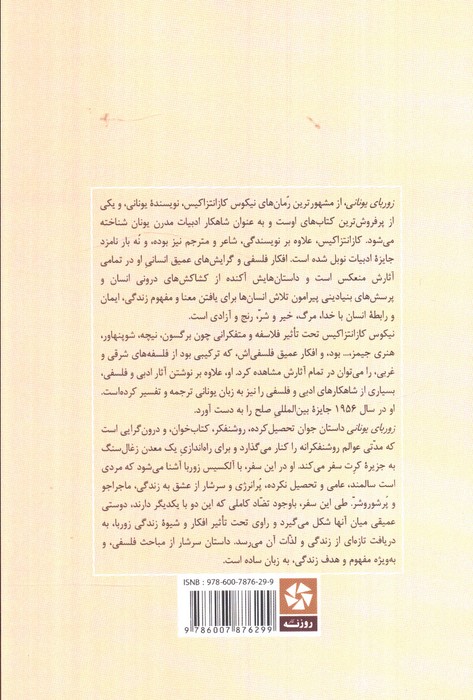 زوربای یونانی، از مشهورترین رُمان‌های نیکوس کازانتزاکیس، نویسندهٔ یونانی، و یکی
از پرفروش‌ترین کتاب‌های اوست و به عنوان شاهکار ادبیات مدرن یونان شناخته
می‌شود. کازانتزاکیس، علاوه بر نویسندگی، شاعر و مترجم نیز بوده، و نُه بار نامزد
جایزهٔ ادبیات نوبل شده است. افکار فلسفی و گرایش‌های عمیق انسانی او در تمامی
آثارش منعکس است و داستان‌هایش آکنده از کشاکش‌های درونی انسان و
پرسش‌های بنیادینی پیرامون تلاش انسان‌ها برای یافتن معنا و مفهوم زندگی، ایمان
و رابطهٔ انسان با خدا، مرگ، خیر و شرّ، رنج و آزادی است.
نیکوس کازانتزاکیس تحت تأثیر فلاسفه و متفکرانی چون برگسون، نیچه، شوپنهاور،
هنری جیمز،... بود، و افکار عمیق فلسفی‌اش، که ترکیبی بود از فلسفه‌های شرقی و
غربی، را می‌توان در تمام آثارش مشاهده کرد. او، علاوه بر نوشتن آثار ادبی و فلسفی،
بسیاری از شاهکارهای ادبی و فلسفی را نیز به زبان یونانی ترجمه و تفسیر کرده‌است.
او در سال ۱۹۵۶ جایزهٔ بین‌المللیِ صلح را به دست آورد.
زوربای یونانی داستان جوان تحصیل‌کرده، روشنفکر، کتاب‌خوان، و درون‌گرایی است
که مدّتی عوالم روشنفکرانه را کنار می‌گذارد و برای راه‌اندازی یک معدن زغال‌سنگ
به جزیرهٔ کرِت سفر می‌کند. او در این سفر، با آلکسیس زوربا آشنا می‌شود که مردی
است سالمند، عامی و تحصیل نکرده، پُرانرژی و سرشار از عشق به زندگی، ماجراجو
و پُرشوروشرّ. طی این سفر، باوجود تضّاد کاملی که این دو با یکدیگر دارند، دوستی
عمیقی میان آنها شکل می‌گیرد و راوی تحت تأثیر افکار و شیوهٔ زندگی زوربا، به
دریافت تازه‌ای از زندگی و لذّات آن می‌رسد. داستان سرشار از مباحث فلسفی، و
به‌ویژه مفهوم و هدف زندگی، به زبان ساده است.
ISBN : 978-600-7876-29-9
9 786007 876299
روزنه